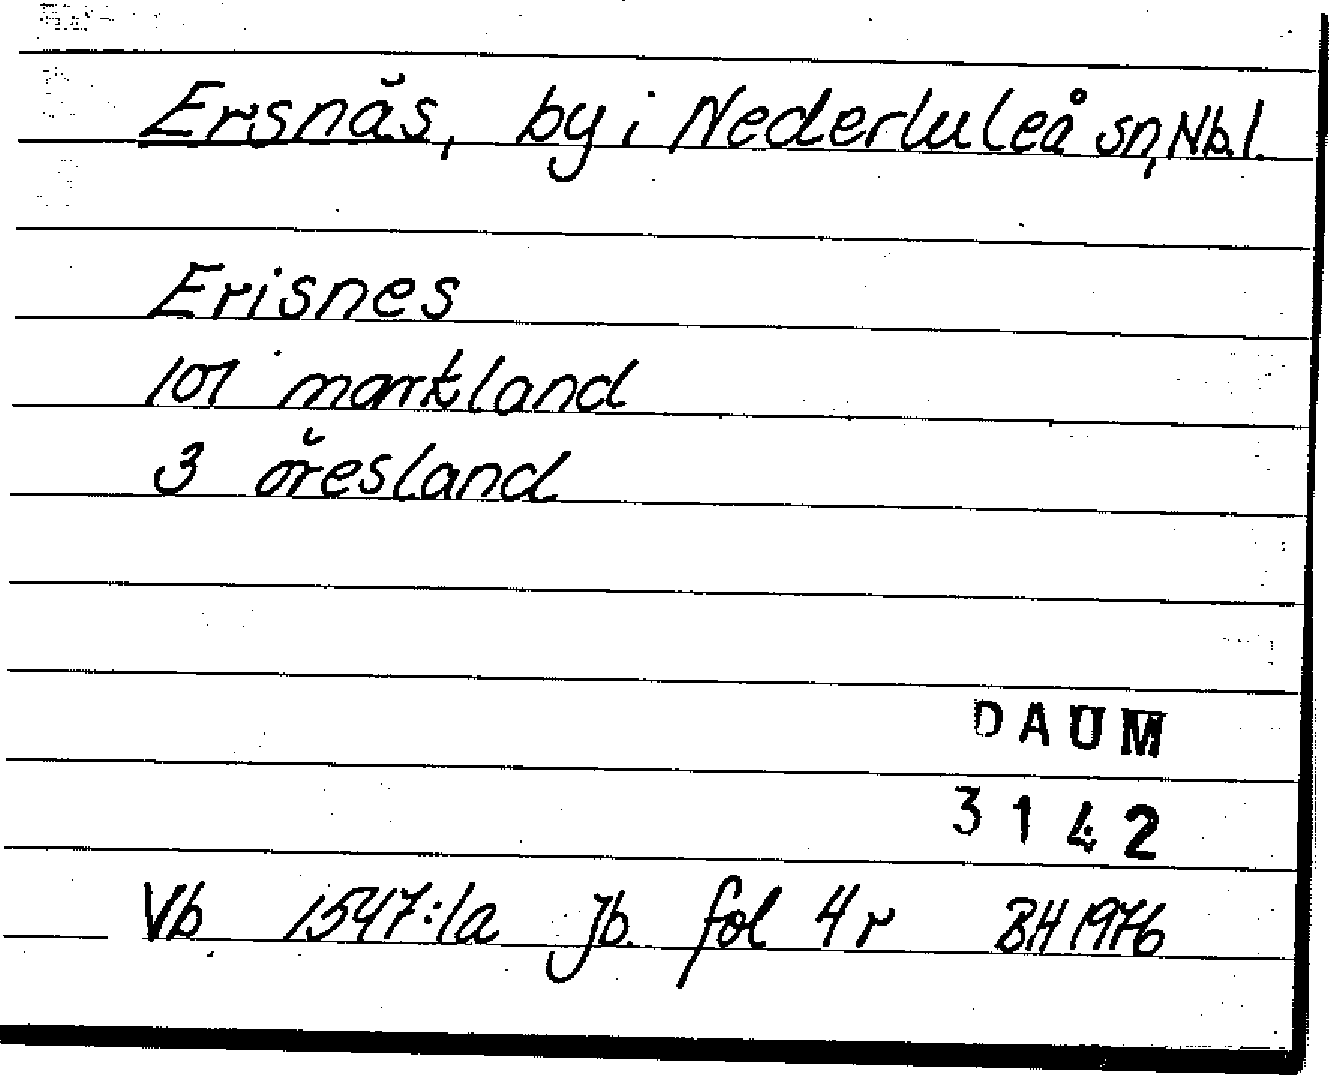 Ersnäs, by i Nederluleå sn, Nb.l.
Erisnes
101 markland
3 öresland
DAUM
3142
Vb 1547:1a Jb. fol 4 r BH 1976